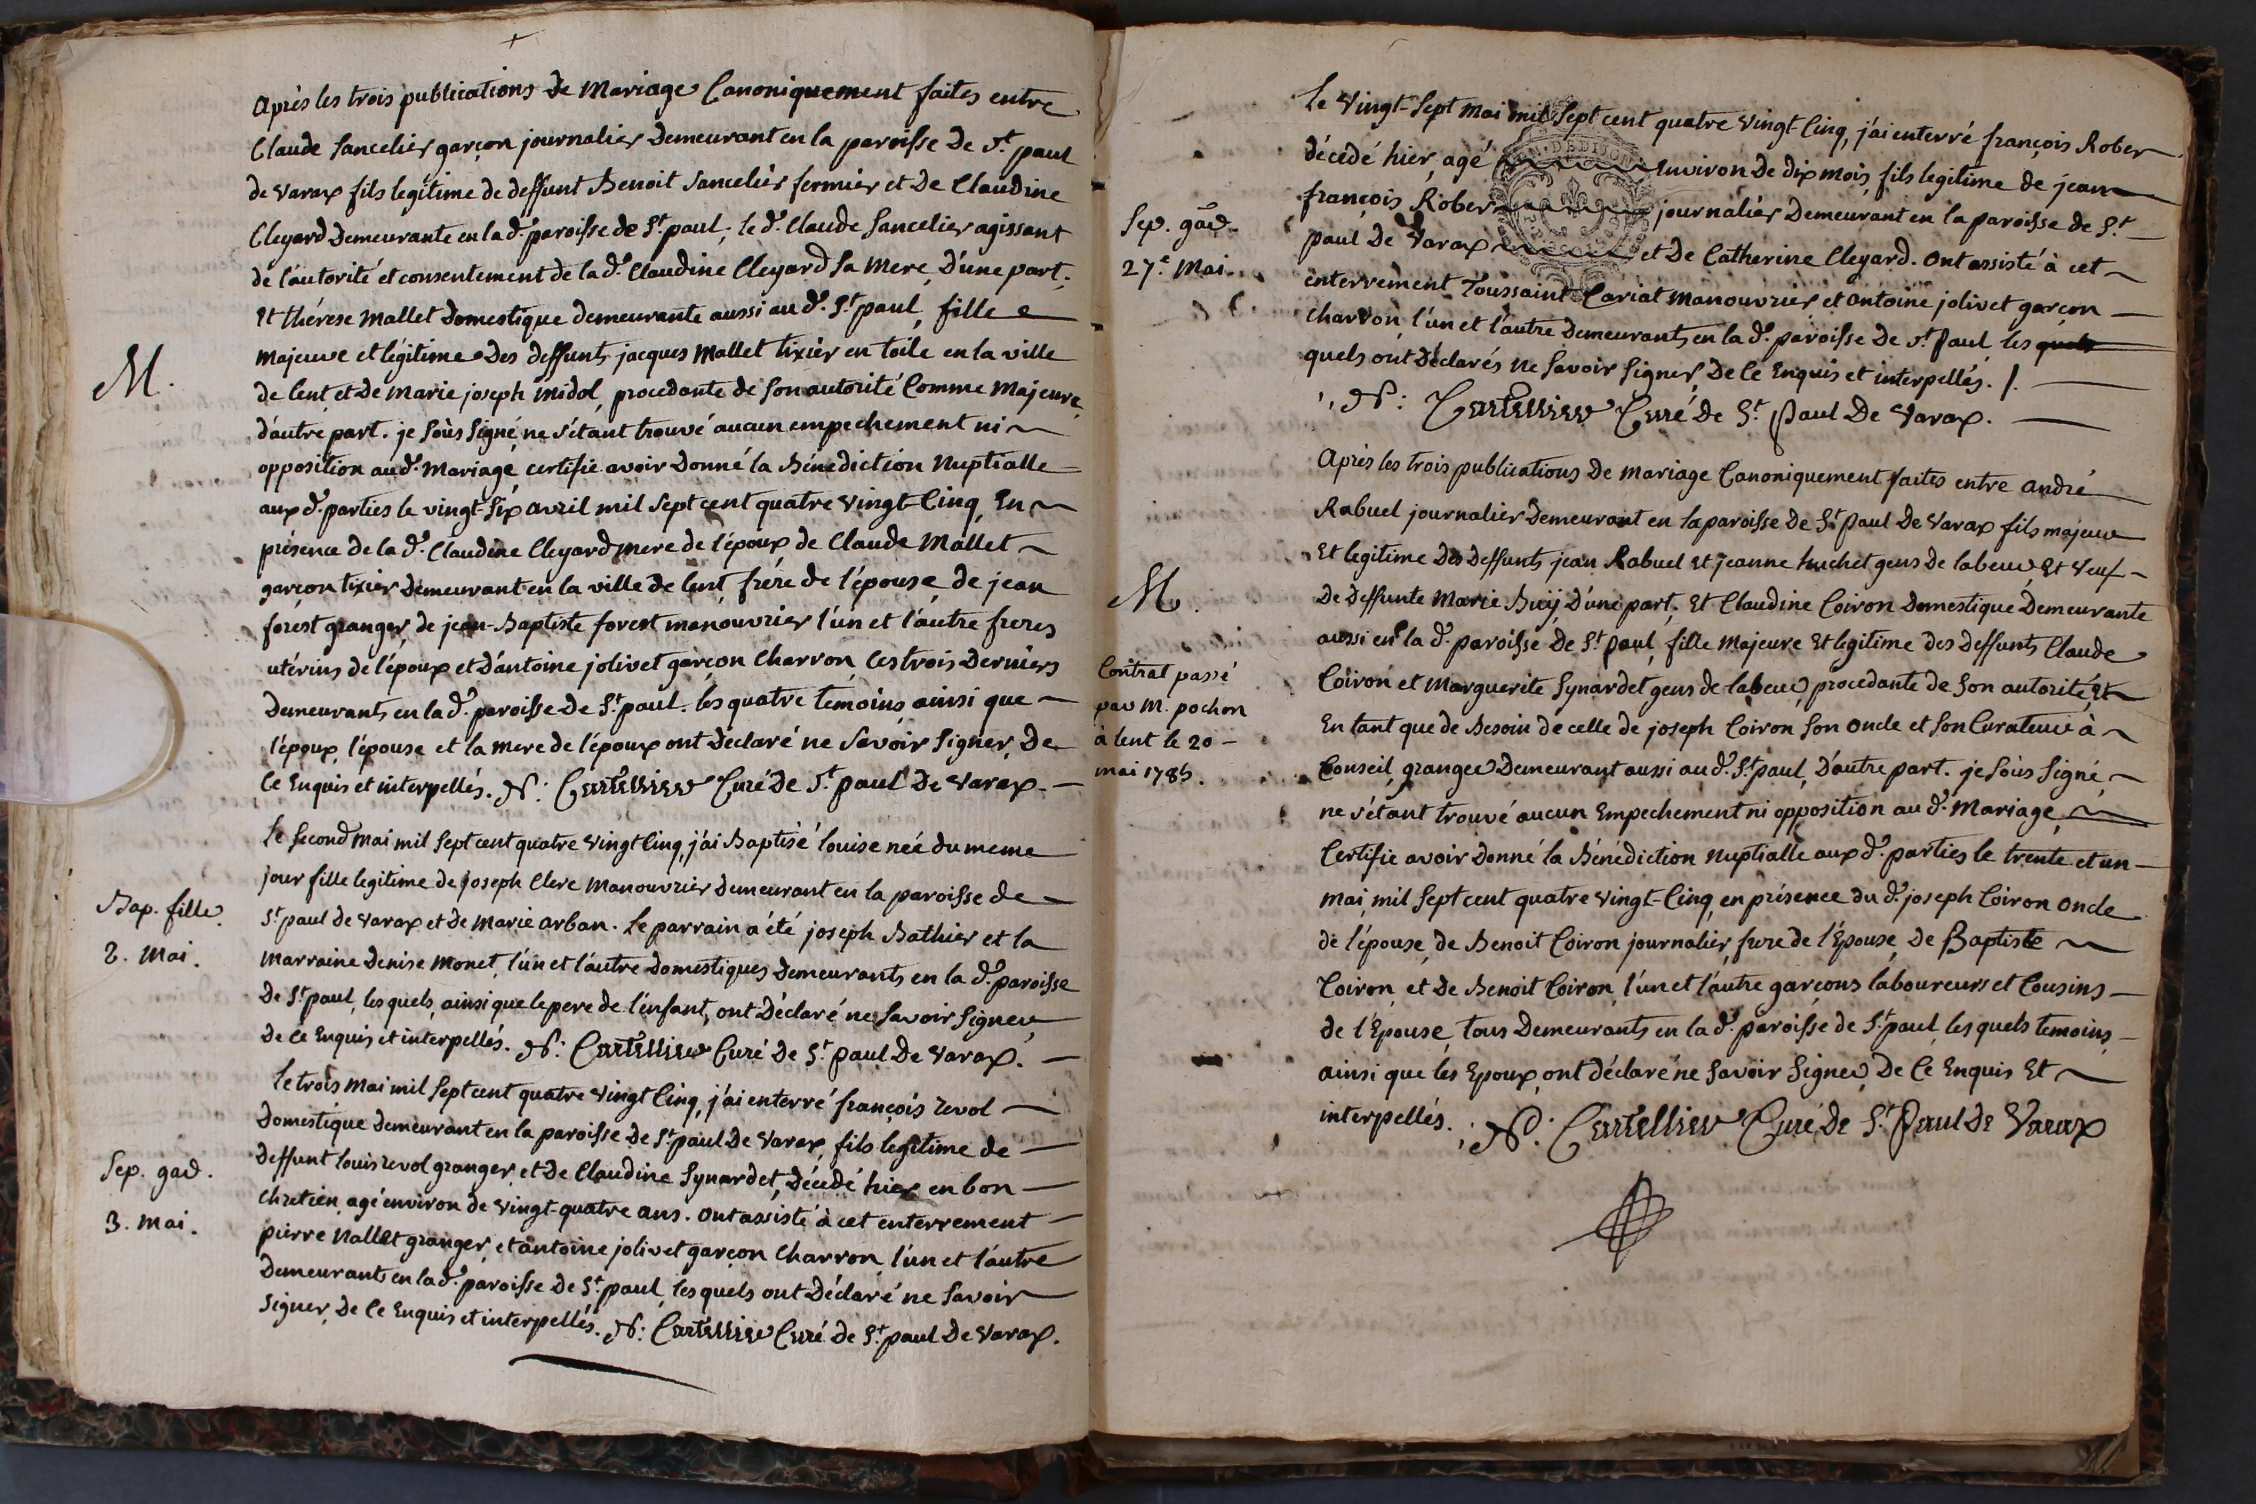 Après les trois publications de Mariage Canoniquement faites entre
Claude Sancelier garçon journalier Demeurant en la paroisse de St. paul
de Varax fils legitime de deffunt Benoit Sancelier fermier et De Claudine
Cleyard Demeurante en la de. paroisse de St. paul; le d. Claude Sancelier agissant
de l'autorité et consentement de la de. Claudine Cleyard sa Mere, D'une part;
Et thérese Mallet Domestique demeurante aussi au d. St. paul, fille
M.
Majeure et légitime Des deffunts jacques Mallet tixier en toile en la ville
de lent et de Marie joseph Midol, procedante de son autorité Comme Majeure,
d'autre part. je soussigné ne s'étant trouvé aucun empechement ni
opposition au d. Mariage, certifie avoir Donné la Bénédiction Nuptialle
aux d. parties le vingt-six avril mil sept cent quatre vingt-Cinq, En
présence de la de. Claudine Cleyard Mere de l'époux de Claude Mallet
garçon tixier demeurant en la ville de lent, frére de l'épouse, de jean
forest granger, de jean-Baptiste forest manouvrier l'un et l'autre freres
utérins de l'époux et d'antoine jolivet garçon Charron, Ces trois Derniers
Demeurants en la de. paroisse De St. paul. les quatre temoins, ainsi que
l'époux, l'épouse et la mere de l'époux ont Déclaré ne Savoir Signer, De
Ce Enquis et interpellés. N: Cartellier Curé de St. paul De Varax.
Le second Mai mil sept cent quatre vingt Cinq, j'ai Baptisé louise neé du meme
jour fille legitime de joseph Clerc Manouvrier Demeurant en la paroisse de
Bap. fille.
St. paul de Varax et de Marie arban. Le parrain a été joseph Bathier et la
2. Mai.
Marraine Denise Monet, l'un et l'autre domestiques Demeurants en la de. paroisse
De St. paul, les quels, ainsi que le pere de l'enfant, ont Déclaré ne Savoir Signer,
de Ce Enquis et interpellés. N: Cartellier Curé De St. paul De Varax.
Le trois Mai mil sept cent quatre vingt Cinq, j'ai enterré françois revol
Domestique demeurant en la paroisse de St. paul De Varax, fils legitime de
Sep. gad.
deffunt louis revol granger, et De Claudine Synardet, Décedé hier en bon
Chretien, agé environ de vingt-quatre ans. Ont assisté à cet enterrement
3. Mai.
pierre Nallet granger, et antoine jolivet garçon Charron, l'un et l'autre
Demeurants en la de. paroisse de St. paul, les quels ont Déclaré ne Savoir
Signer, De Ce Enquis et interpellés. N: Cartellier Curé de St. paul De Varax.
Le Vingt-sept Mai mil sept cent quatre Vingt Cinq, j'ai enterré françois Rober
décedé hier, agé Environ De dix mois, fils legitime de jean
françois Rober journalier Demeurant en la paroisse de St.
Sep. gad.
paul De Varax et De Catherine Cleyard. Ont assisté à cet
27e. Mai.
enterrement Toussaint Cariat Manouvrier, et antoine jolivet garçon
Charron, l'un et l'autre Demeurants en la de. paroisse De St. Paul, les quels
quels ont Déclarés ne Savoir Signer, De Ce Enquis et interpellés. /.
N: Cartellier Curé de St. Paul De Varax.
Après les trois publications de Mariage Canoniquement faites entre André
Rabuel journalier Demeurant en la paroisse de St. Paul De Varax fils majeur
Et legitime Des deffunts jean Rabuel et jeanne huchet gens De labeur, Et Veuf
M.
De deffunte Marie Buij D'une part; Et Claudine Coiron Domestique Demeurante
aussi en la de. paroisse De St. Paul, fille Majeure Et legitime des deffunts Claude
Contrat passé
Coiron et Marguerite Synardet gens de labeur, procedante de Son autorité, Et
par M. pochon
En tant que de Besoin de celle de joseph Coiron Son Oncle et Son Curateur à
à lent le 20
Conseil, granger Demeurant aussi au d. St. paul, D'autre part. je soussigné,
mai 1785.
ne s'étant trouvé aucun Empechement ni opposition au d. Mariage,
Certifie avoir Donné la Bénédiction Nuptialle aux d. parties le trente et un
Mai, mil sept cent quatre vingt-Cinq, en présence du d. joseph Coiron Oncle
de l'épouse, de Benoit Coiron journalier, frere de l'Epouse, De Baptiste
Coiron, et De Benoit Coiron, l'un et l'autre garçons laboureurs et Cousins
de l'Epouse, tous Demeurants en la de. paroisse de St. paul, les quels temoins,
ainsi que les Epoux, ont déclaré ne Savoir Signer, De Ce Enquis Et
interpellés. N: Cartellier Curé De St. Paul de Varax